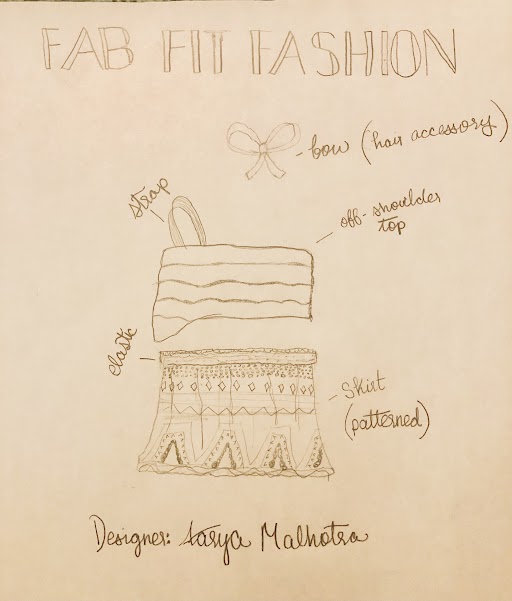 FAB FIT FASHION
bow (hair accessory)
strap
off-shoulder
top
elastic
skirt
(patterned)
Designer: Malhotra